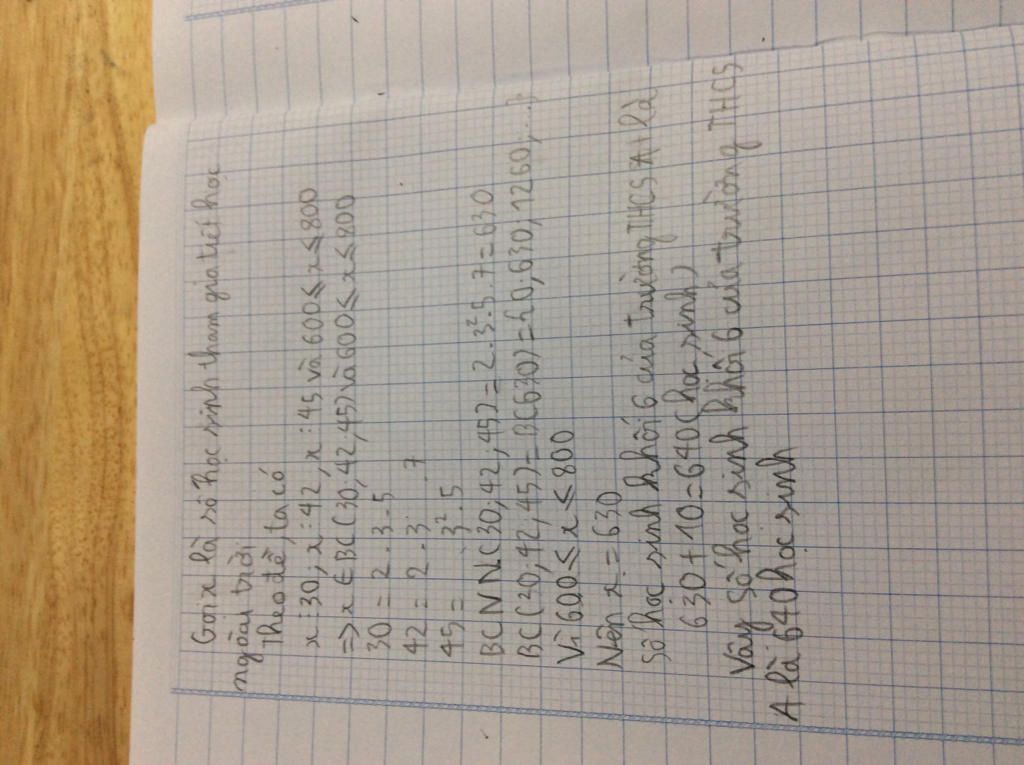 Gọi x là số học sinh tham gia tiết học
ngoài trời
Theo đề, ta có
x ⋮ 30; x ⋮ 42; x ⋮ 45 và 600 ≤ x ≤ 800
=> x ∈ BC(30,42,45) và 600 ≤ x ≤ 800
30 = 2.3.5
42 = 2.3.7
45 = 3².5
BCNN(30;42;45) = 2.3².5.7 = 630
BC(30;42,45) = BC630) = {0;630;1260;...}
Vì 600 ≤ x ≤ 800
Nên x = 630
Số học sinh khối 6 của trường THCS A là
630 + 10 = 640 (học sinh)
Vậy số học sinh khối 6 của trường THCS
A là 640 học sinh